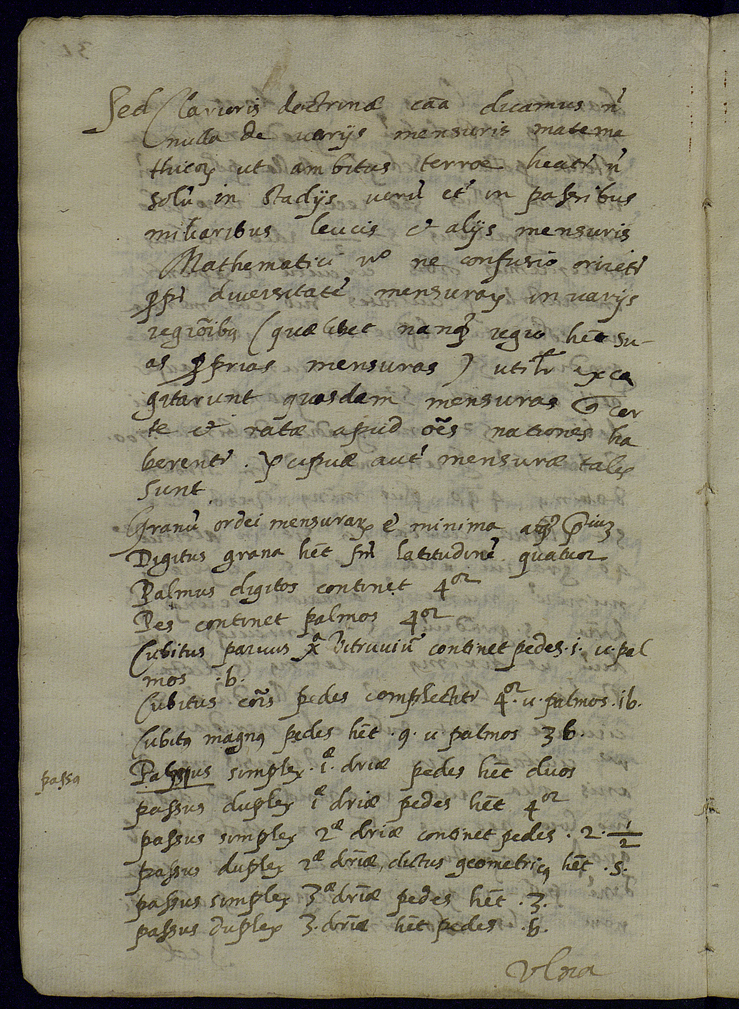 Sed Clarioris doctrinæ cãa dicamus ñ
nulla de varijs mensuris matema
thicoꝝ ut ambitus terræ heatr̃ ñ
solũ in stadijs verũ et in passibus
miliaribus leucis et alijs mensuris
Mathematici vº ne confusio oriretr̃
ꝓpr̃ diversitatẽ mensuraꝝ in varijs
regiõibꝰ (quælibet nanqꝫ regio hẽt su-
as ꝓprias mensuras) utilr̃ exco
gitarunt quasdam mensuras q̃ cer
te et ratæ apud oẽs nationes ha
berentr̃. præcipuæ autẽ mensuræ tales
sunt.
Granũ ordei mensuraꝝ ẽ minima
Digitus grana hẽt sm̃ latitudinẽ quatuor
Palmus digitos continet 4or
Pes continet palmos 4or
Cubitus parvus Vitruviũ continet pedes .i. u. pal
mos .6.
Cubitus cõis pedes complectitr̃ 4or. u. palmos .16.
Cubitꝰ magnꝰ pedes hẽt .9. u palmos 36.
Passus simplex .iæ. driæ pedes hẽt duos
passꝰ
passus duplex iæ driæ pedes hẽt 4or
passus simplex 2æ driæ continet pedes .2. 1/2
passus duplex 2æ driæ, dictus geometricꝰ hẽt .5.
passus simplex 3æ driæ pedes hẽt .3.
passus duplex 3. driæ hẽt pedes .6.
Vlna